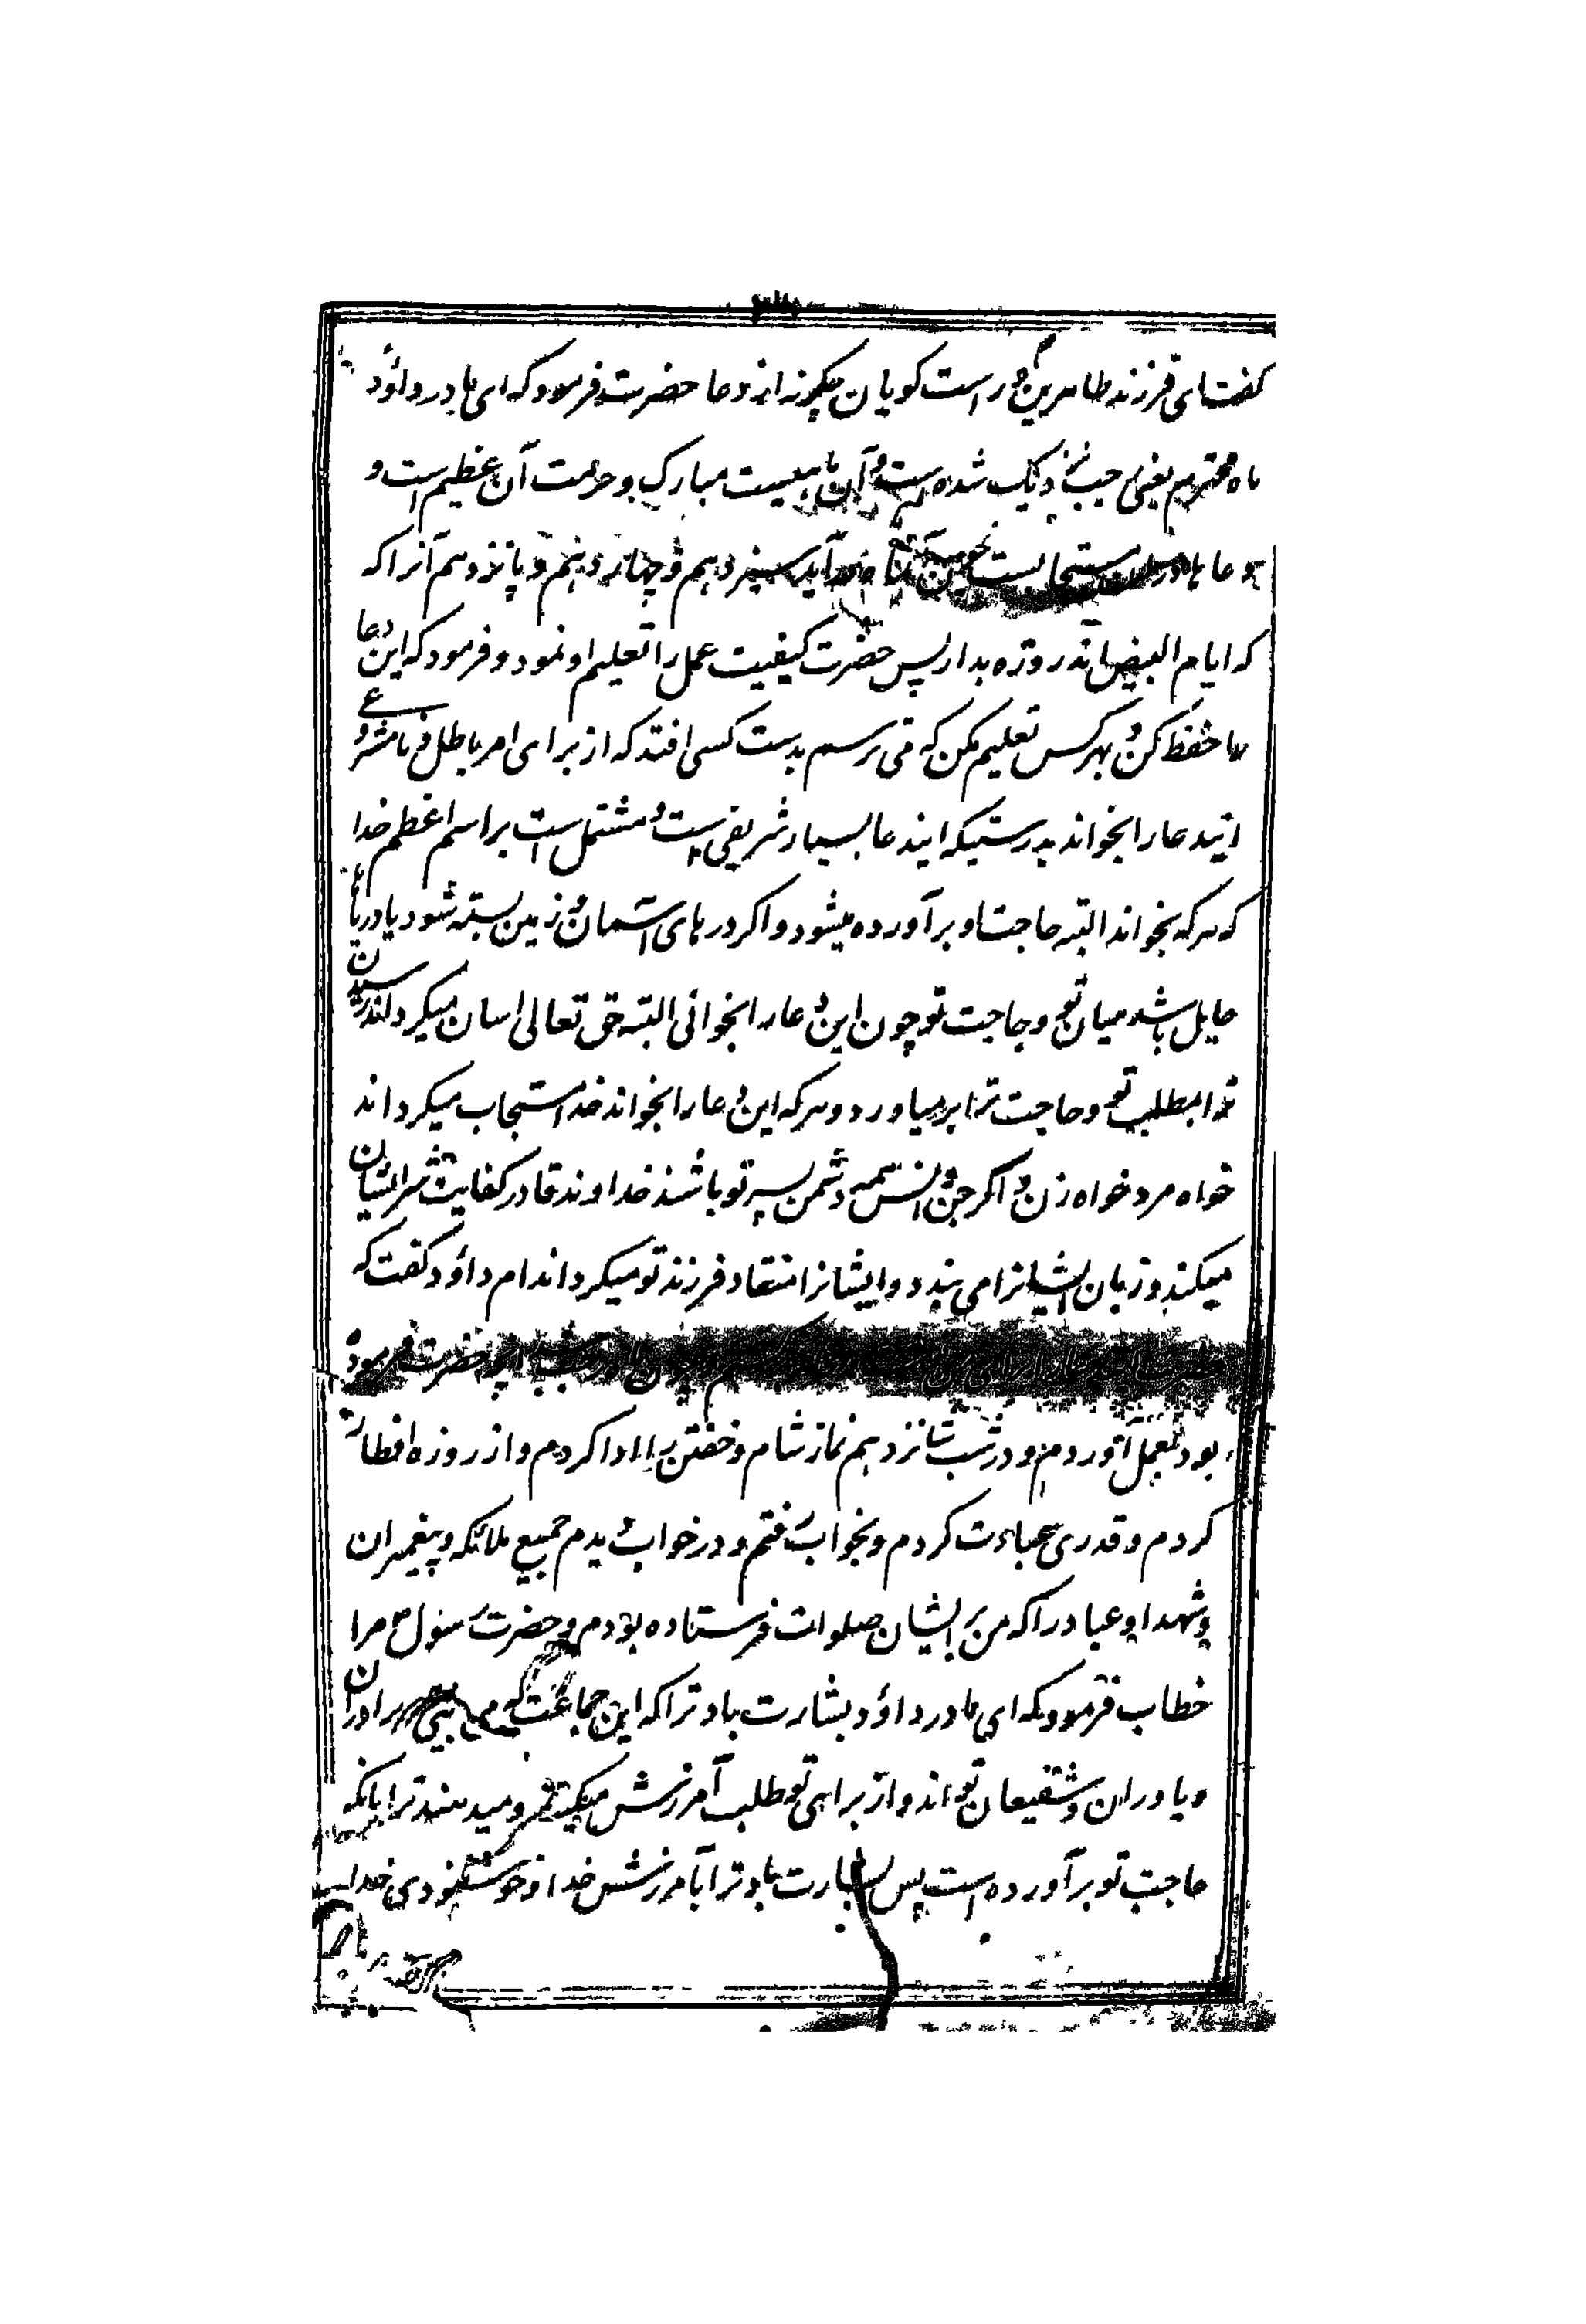 گفت ای فرزند طاهرین و راست گویان چگونه اند دعا حضرت فرمود که ای مادر داؤد
ماه محترم یعنی رجب نزدیک شده است و آن ماهیست مبارک و حرمت آن عظیم است و
دعاها در آن مستجابست سیزدهم و چهاردهم و پانزدهم آنرا که
که ایام البیض اند روزه بدار پس حضرت کیفیت عمل را تعلیم او نمود و فرمود که این دعا
را حفظ کن و بهر کس تعلیم مکن که می ترسم بدست کسی افتد که از برای امر باطل و نامشروع
ایندعا را بخواند بدرستیکه ایندعا بسیار شریفی است و مشتمل است بر اسم اعظم خدا
که هر که بخواند البته حاجت او برآورده میشود و اگر درهای آسمان و زمین بسته شود یا دریاها
حایل باشد میان تو و حاجت تو چون این دعا را بخوانی البته حق تعالی اسان میگرداند رسیدن
ترا بمطلب تو و حاجت ترا بر میاورد و هر که این دعا را بخواند خدا مستجاب میگرداند
خواه مرد خواه زن و اگر جن و انس همه دشمن پسر تو باشند خداوند قادر کفایت شر ایشان
میکند و زبان ایشانرا می بندد و ایشانرا منقاد فرزند تو میگرداند ام داؤد گفت که
حضرت فرموده
بود بعمل آوردم و در شب شانزدهم نماز شام و خفتن را ادا کردم و از روزه افطار
کردم و قدری عبادت کردم و بخواب رفتم و در خواب دیدم جمیع ملائکه و پیغمبران
و شهدا و عباد را که من بر ایشان صلوات فرستاده بودم و حضرت رسول ص مرا
خطاب فرمود که ای مادر داؤد بشارت باد ترا که این جماعت که می بینی برادران
و یاوران و شفیعان تو اند و از برای تو طلب آمرزش میکنند و میدهند ترا بانکه
حاجت تو برآورده است پس بشارت باد ترا بآمرزش خدا و خوشنودی خدا